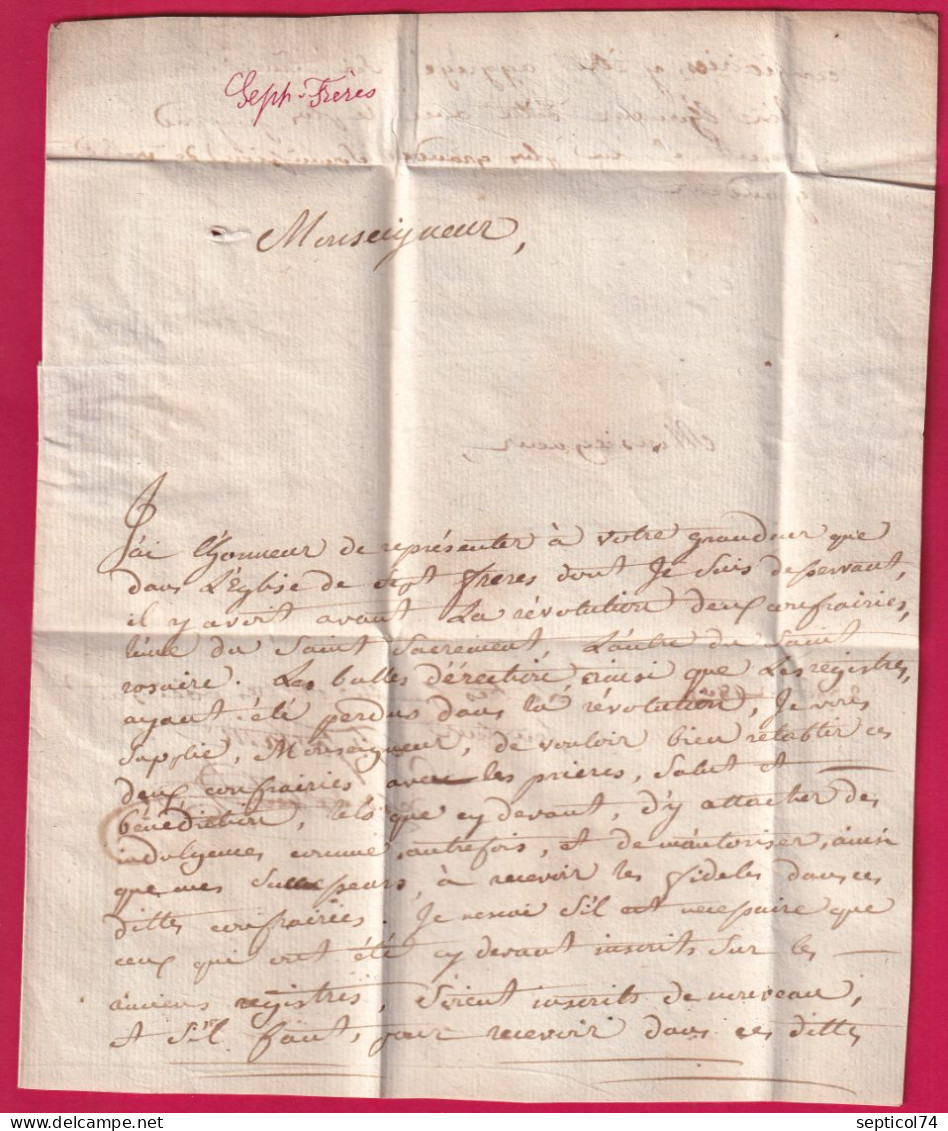 confrairies, y être aggregé
plus grand
Sept-Frères
Monseigneur,
J'ai l'honneur de représenter à votre grandeur que
dans L'Eglise de Sept frères dont Je suis desservant,
il y avoit avant La révolution deux confrairies,
l'une du Saint Sacrement, L'autre du Saint
rosaire. Les bulles d'érection ainsi que Les registres,
ayant été perdus dans la révolution, Je vous
supplie, Monseigneur, de vouloir bien rétablir ces
deux confrairies avec les prières, Salut et
bénédiction, tels que cy devant, d'y attacher des
indulgences comme autrefois, et de m'autoriser, ainsi
que mes Successeurs, à recevoir les fideles dans ces
dittes confrairies. Je ne sai S'il est necessaire que
ceux qui ont été cy devant inscrits Sur les
anciens registres, Soient inscrits de nouveau,
et S'il faut, pour recevoir dans ces dittes
septicol74